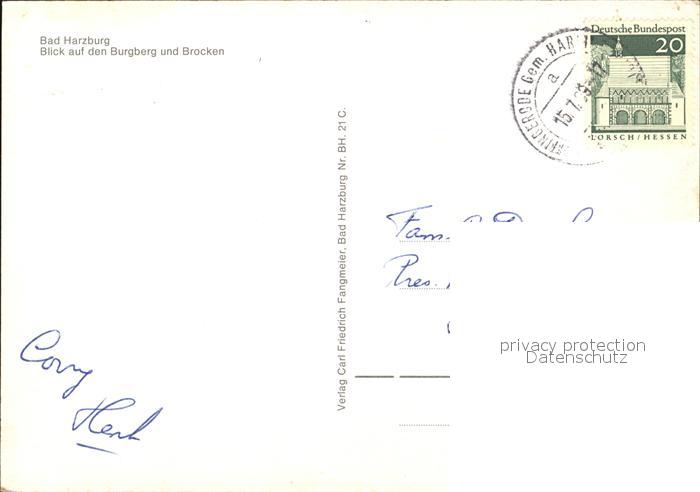 Bad Harzburg
Blick auf den Burgberg und Brocken
Deutsche Bundespost
20
LORSCH / HESSEN
Gem. HAR
a
15.7.
Verlag Carl Friedrich Fangmeier, Bad Harzburg Nr. BH. 21 C.
Fam.
Pres.
privacy protection
Datenschutz
Corry
Henk